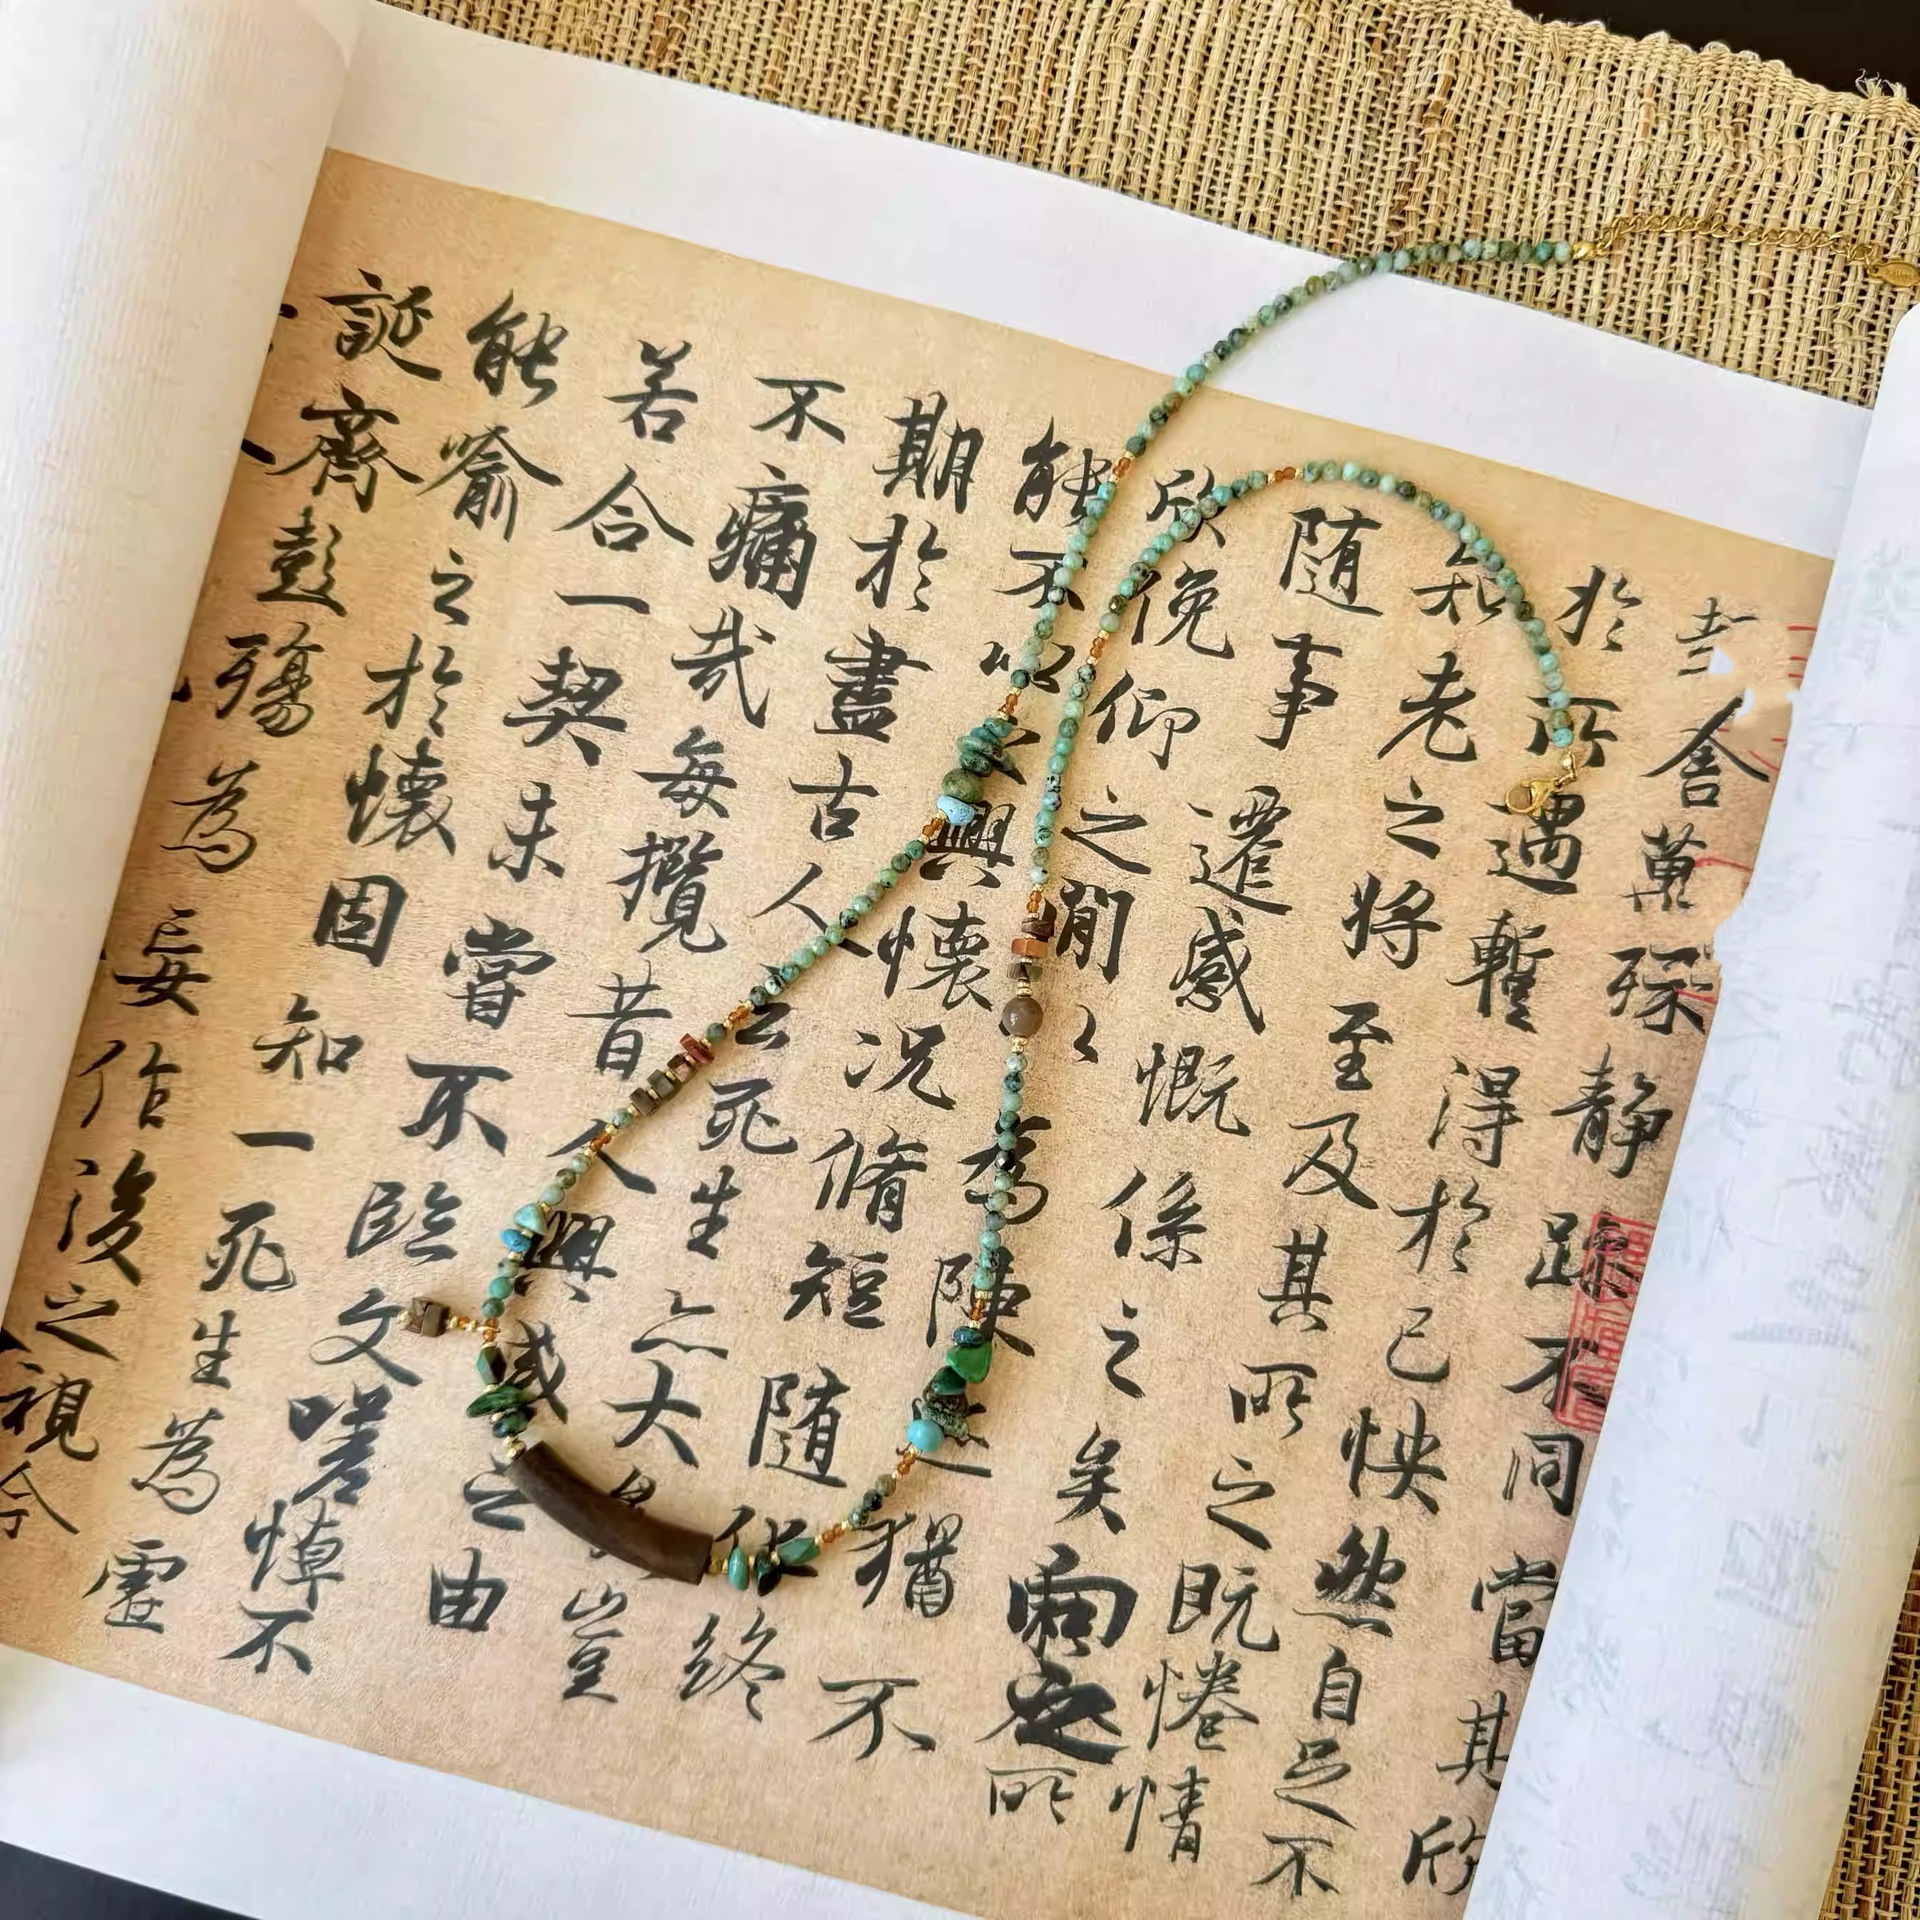 舍萬殊靜躁不同當其欣
於所遇暫得於己快然自足不
知老之將至及其所之既惓情
隨事遷感慨係之矣向之所
欣俛仰之閒以為陳迹猶不
能不以之興懷況脩短隨化終
期於盡古人云死生亦大矣豈
不痛哉每攬昔人興感之由
若合一契未嘗不臨文嗟悼不
能喻之於懷固知一死生為虛
誕齊彭殤為妄作後之視今